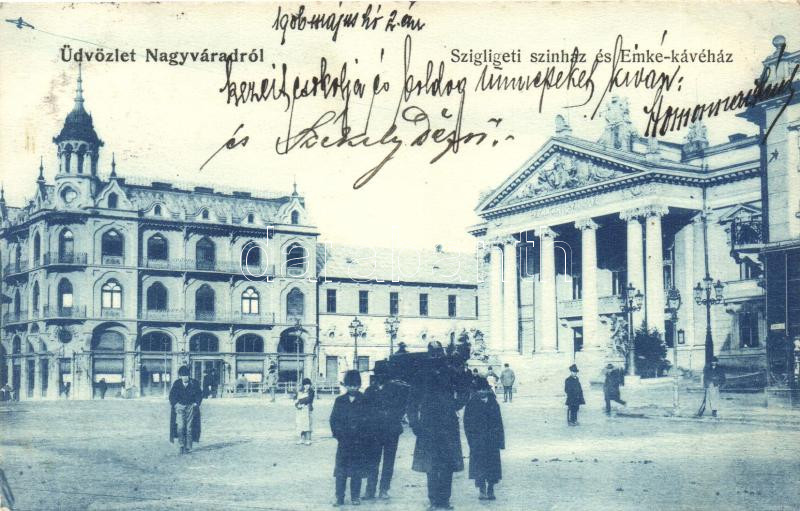 1906 május hó 2.án
Üdvözlet Nagyváradról
Szigligeti szinház és Emke-kávéház
kezeit csókolja és boldog ünnepeket kíván:
és Székely Dezső.
darabanth